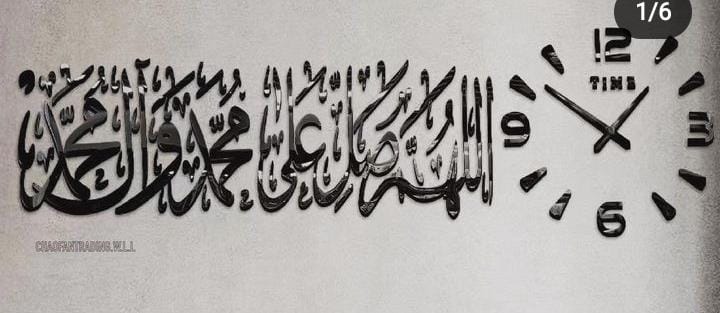 1/6
اللهم صل على محمد وآل محمد
12
TIME
9
3
6
CHAOFANTRADING.W.L.L